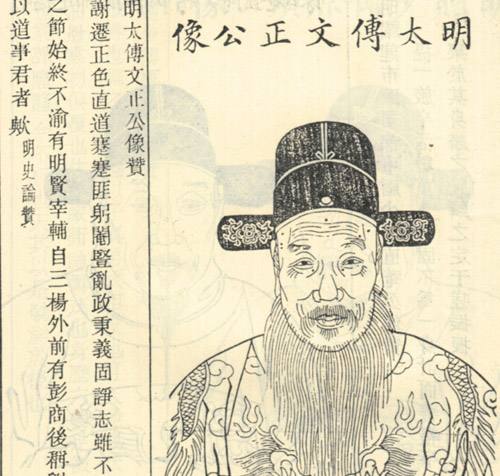 明太傅文正公像
明太傅文正公像贊
謝遷正色直道蹇蹇匪躬閹豎亂政秉義固諍志雖不
之節始終不渝有明賢宰輔自三楊外前有彭商後稱
以道事君者歟 明史論贊